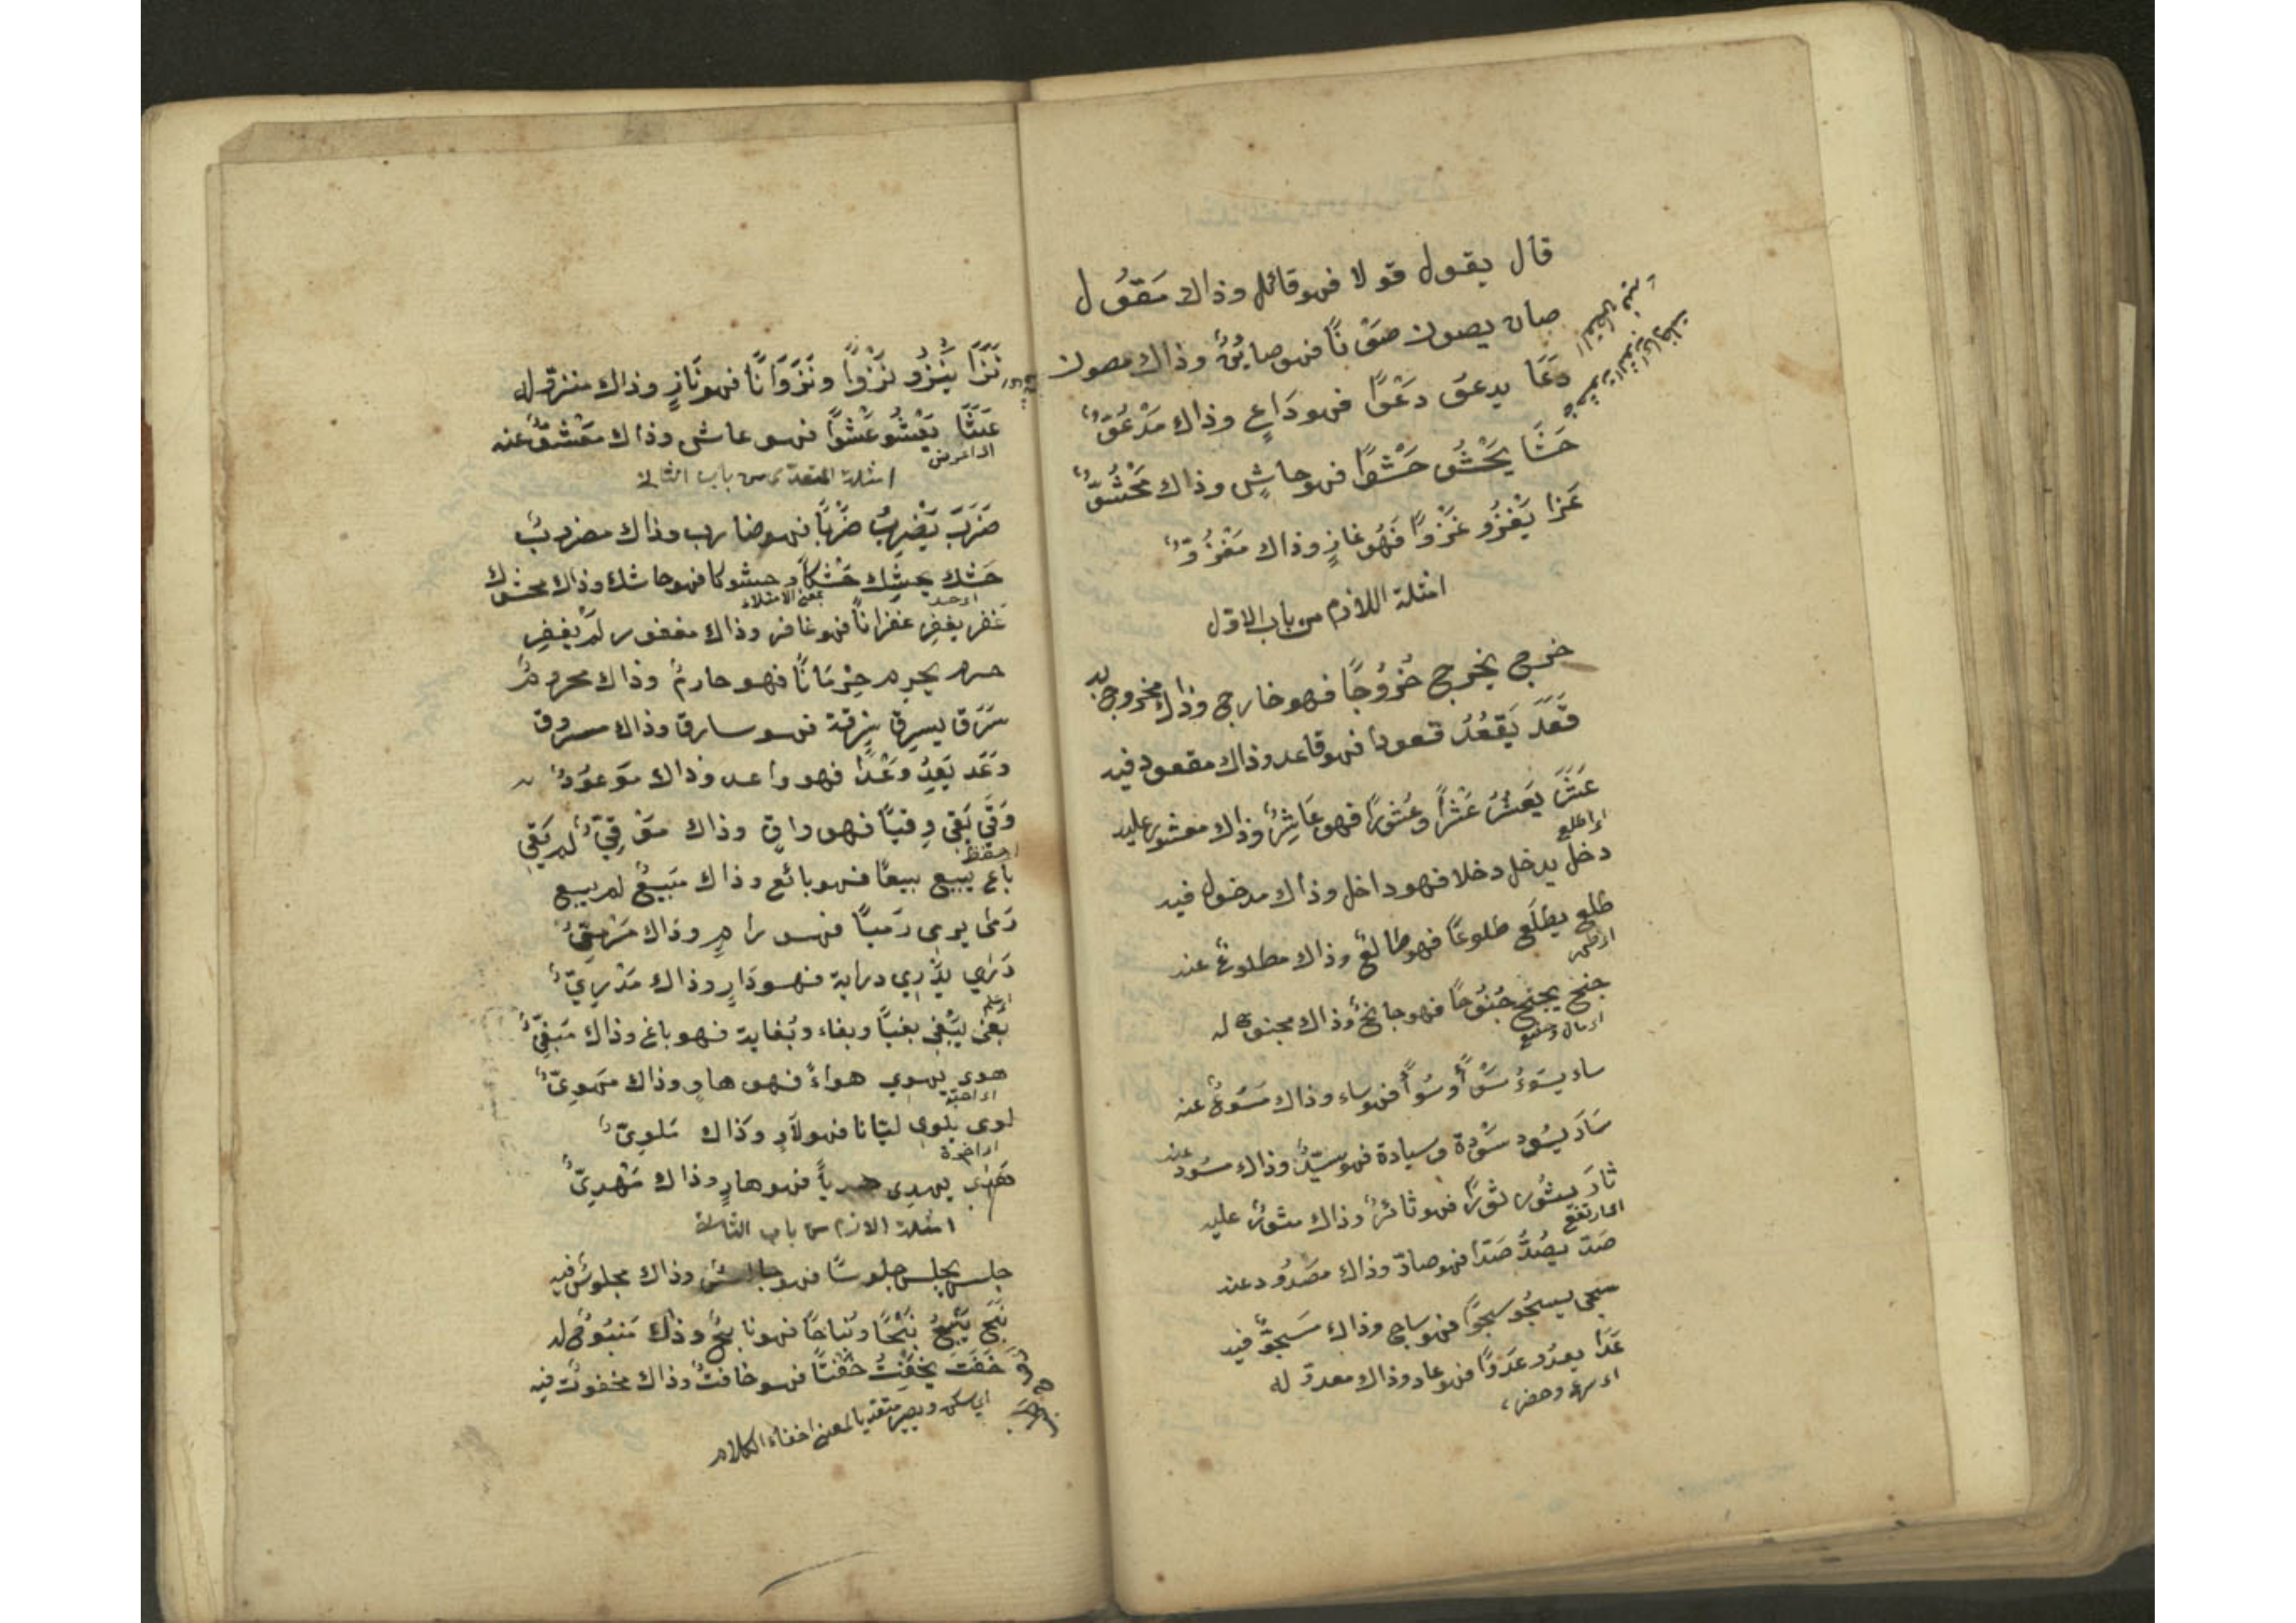 قال يقول قولا فهو قائل وذاك مَقُول
صان يصون صَوْنًا فهو صاينٌ وذاك مصون
دَعَا يدعو دَعْوًا فهو دَاعٍ وذاك مَدْعُوٌّ
حَشَا يَحْشُو حَشْوًا فهو حاشٍ وذاك مَحْشُوٌّ
غَزا يَغْزُو غَزْوًا فَهُو غازٍ وذاك مَغْزُوٌّ
امثلة اللازم من باب الاول
خرج يخرج خُرُوجًا فهو خارج وذاك مخروج به
قَعَدَ يَقْعُدُ قعودا فهو قاعد وذاك مقعود فيه
عَثَرَ يَعْثُرُ عَثْرًا وعُثورًا فهو عَاثِرٌ وذاك معثور عليه
اى اطلع
دخل يدخل دخلا فهو داخل وذاك مدخول فيه
طلع يطلَع طلوعًا فهو طالعٌ وذاك مطلوعٌ عنه
اى ظهر
جنح يجنح جُنُوحًا فهو جانحٌ وذاك مجنوح له
اى مال وخضع
ساء يسُوءُ سَوْأً وسُوأً فهو ساء وذاك مَسُوءٌ عنه
سَادَ يسُود سَوْدة وسيادة فهو سيّدٌ وذاك مسُود عنه
ثارَ يثُور ثورًا فهو ثائرٌ وذاك مثورٌ عليه
اى ارتفع
صَدّ يصُدُّ صَدّا فهو صادّ وذاك مصْدُود عنه
سجى يسجُو سجوًا فهو ساج وذاك مسْجوٌّ فيه
عَدَا يعدُو عَدْوًا فهو عاد وذاك معدوّ له
اى سرع وحضر
نَزَا يَنْزُو نَزْوًا ونَزَوَانًا فهو نَازٍ وذاك منزوّ له
عَشَا يَعْشُو عَشْوًا فهو عاش وذاك مَعْشُوٌّ عنه
اى اعرض
امثلة المتعدى من باب الثانى
ضَرَبَ يَضْرِبُ ضَرْبًا فهو ضارب وذاك مضروبٌ
حَشك يحشِك حَشْكًا وحشوكا فهو حاشك وذاك محشوك
بمعنى الامتلاء
غفر يغفِر غفرانًا فهو غافر وذاك مغفور لم يغفِر
حرم يحرِم حِرْمَانًا فهو حارمٌ وذاك محرومٌ
سَرَق يسرِق سِرقة فهو سارق وذاك مسروق
وَعَد يَعِدُ وَعْدًا فهو واعد وذاك موعودٌ
وَقَى يَقِي وقيًا فهو واقٍ وذاك مَوْقِيٌّ لم يَقِي
اى حفظ
باع يبيع بيعًا فهو بائع وذاك مَبِيعٌ لم يبيع
رَمَى يرمى رَميًا فهو رامٍ وذاك مَرْمِيٌّ
دَرَي يَدْرِي دراية فهو دَارٍ وذاك مَدْرِيٌّ
اى علم
بَغَى يَبْغِي بغيًا وبغاء وبُغاية فهو باغ وذاك مَبْغِيٌّ
هوى يهوى هواءً فهو هاوٍ وذاك مهوِىٌّ
اى احبّه
لوى يلوى ليّانا فهو لَاوٍ وذاك مَلوِىٌّ
اى اخره
هَدَى يهدِى هديًا فهو هادٍ وذاك مَهْدِىٌّ
امثلة اللازم من باب الثانى
جلس يجلس جلوسًا فهو جالسٌ وذاك مجلوسٌ فيه
نَبَحَ يَنْبِحُ نَبْحًا ونُباحًا فهو نابحٌ وذاك مَنبُوحٌ له
خَفَتَ يَخْفِتُ خَفْتًا فهو خافتٌ وذاك مخفوتٌ فيه
اى سكن ويصير متعديا بمعنى اخفاء الكلام